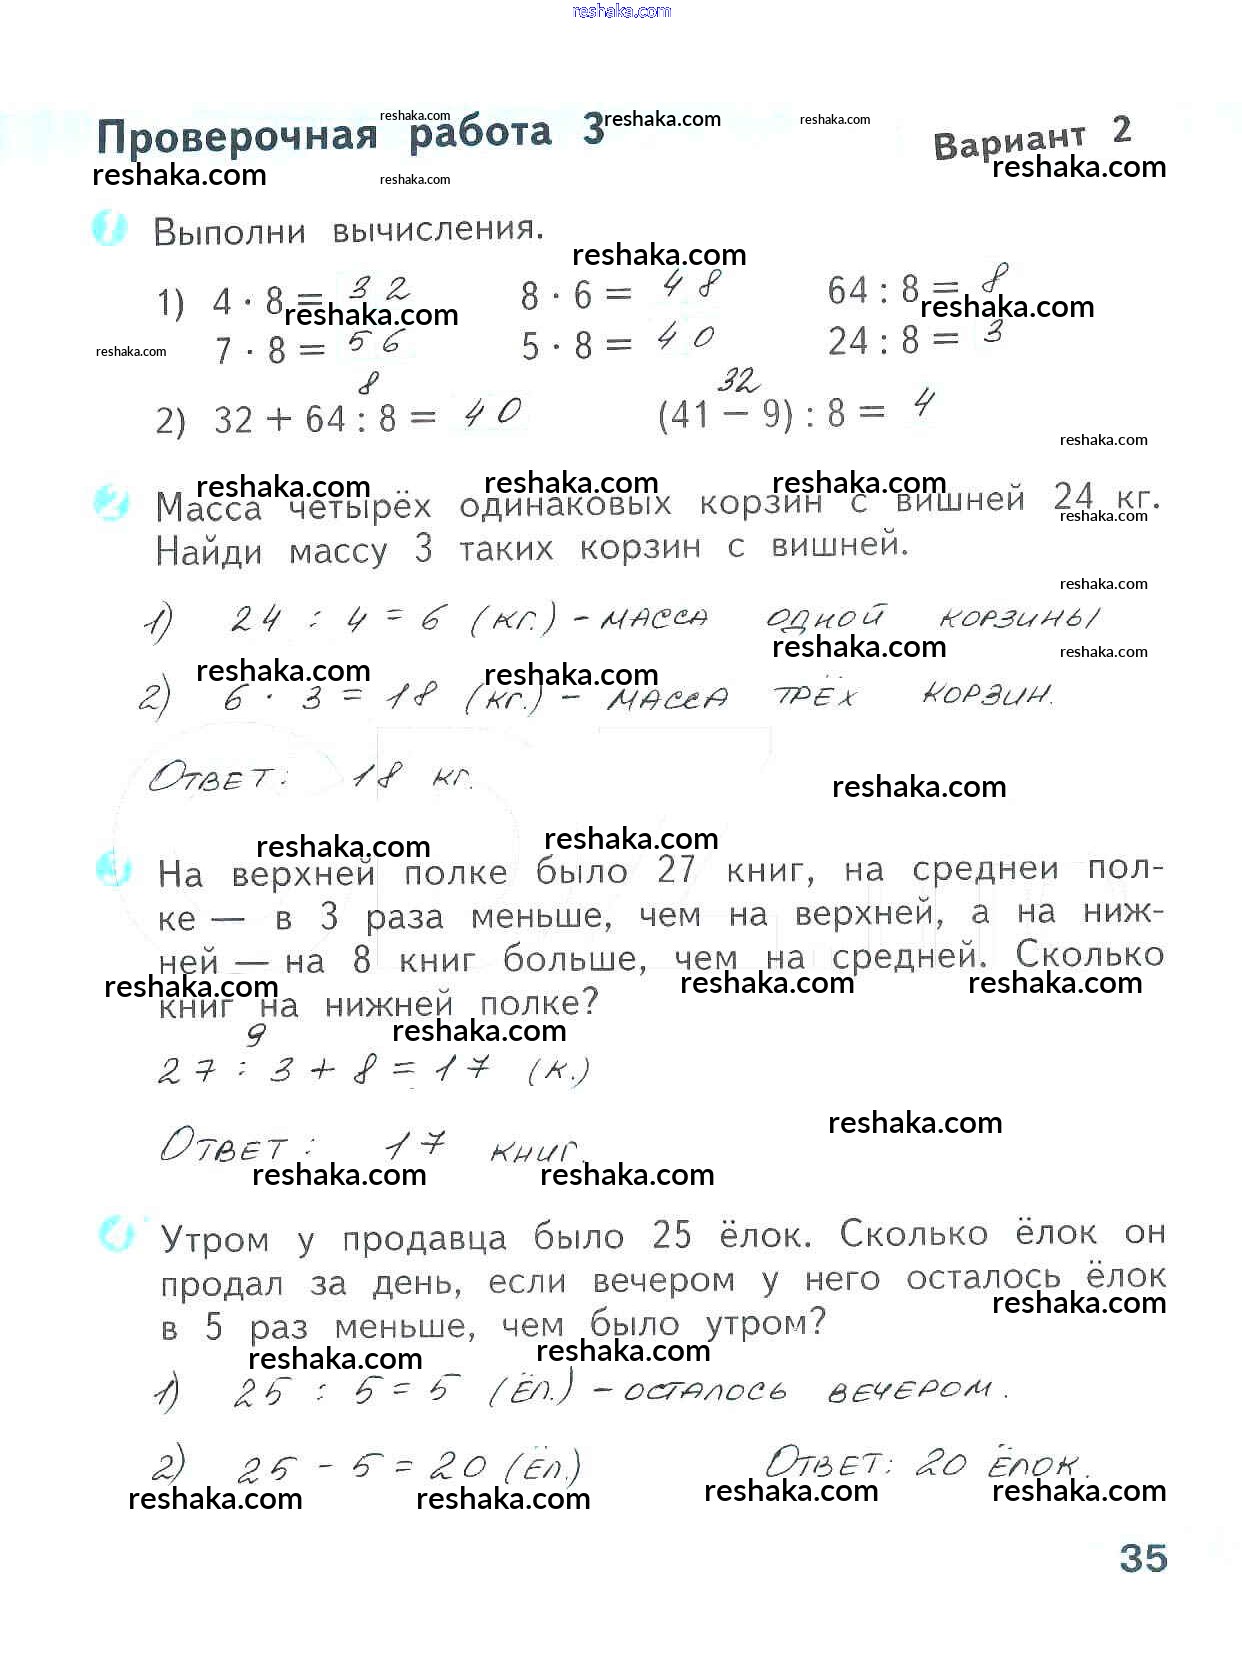 reshaka.com
Проверочная работа 3 Вариант 2
reshaka.com reshaka.com reshaka.com
reshaka.com reshaka.com reshaka.com
1 Выполни вычисления.
reshaka.com
1) 4 · 8 = 32 8 · 6 = 48 64 : 8 = 8
reshaka.com reshaka.com
7 · 8 = 56 5 · 8 = 40 24 : 8 = 3
reshaka.com
8 32
2) 32 + 64 : 8 = 40 (41 − 9) : 8 = 4
reshaka.com
reshaka.com reshaka.com reshaka.com
2 Масса четырёх одинаковых корзин с вишней 24 кг.
reshaka.com
Найди массу 3 таких корзин с вишней.
reshaka.com
1) 24 : 4 = 6 (кг.) – масса одной корзины
reshaka.com reshaka.com
reshaka.com reshaka.com
2) 6 · 3 = 18 (кг.) – масса трёх корзин.
Ответ: 18 кг.
reshaka.com
reshaka.com reshaka.com
3 На верхней полке было 27 книг, на средней пол-
ке — в 3 раза меньше, чем на верхней, а на ниж-
ней — на 8 книг больше, чем на средней. Сколько
reshaka.com reshaka.com reshaka.com
книг на нижней полке?
9 reshaka.com
27 : 3 + 8 = 17 (к.)
reshaka.com
Ответ: 17 книг.
reshaka.com reshaka.com
4 Утром у продавца было 25 ёлок. Сколько ёлок он
продал за день, если вечером у него осталось ёлок
reshaka.com
в 5 раз меньше, чем было утром?
reshaka.com reshaka.com
1) 25 : 5 = 5 (ёл.) – осталось вечером.
2) 25 – 5 = 20 (ёл.) Ответ: 20 ёлок.
reshaka.com reshaka.com reshaka.com reshaka.com
35